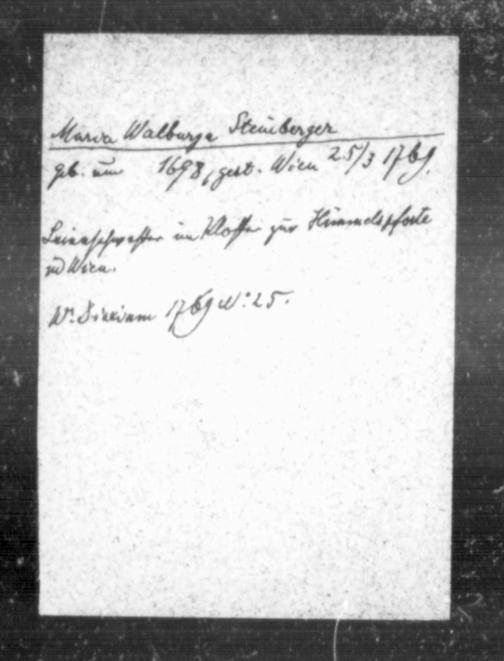 Maria Walburga Steinberger
geb. um 1698, gest. Wien 25/3 1769.
Laienschwester im Kloster zur Himmelspforte
in Wien.
Wr. Diarium 1769 Nº 25.